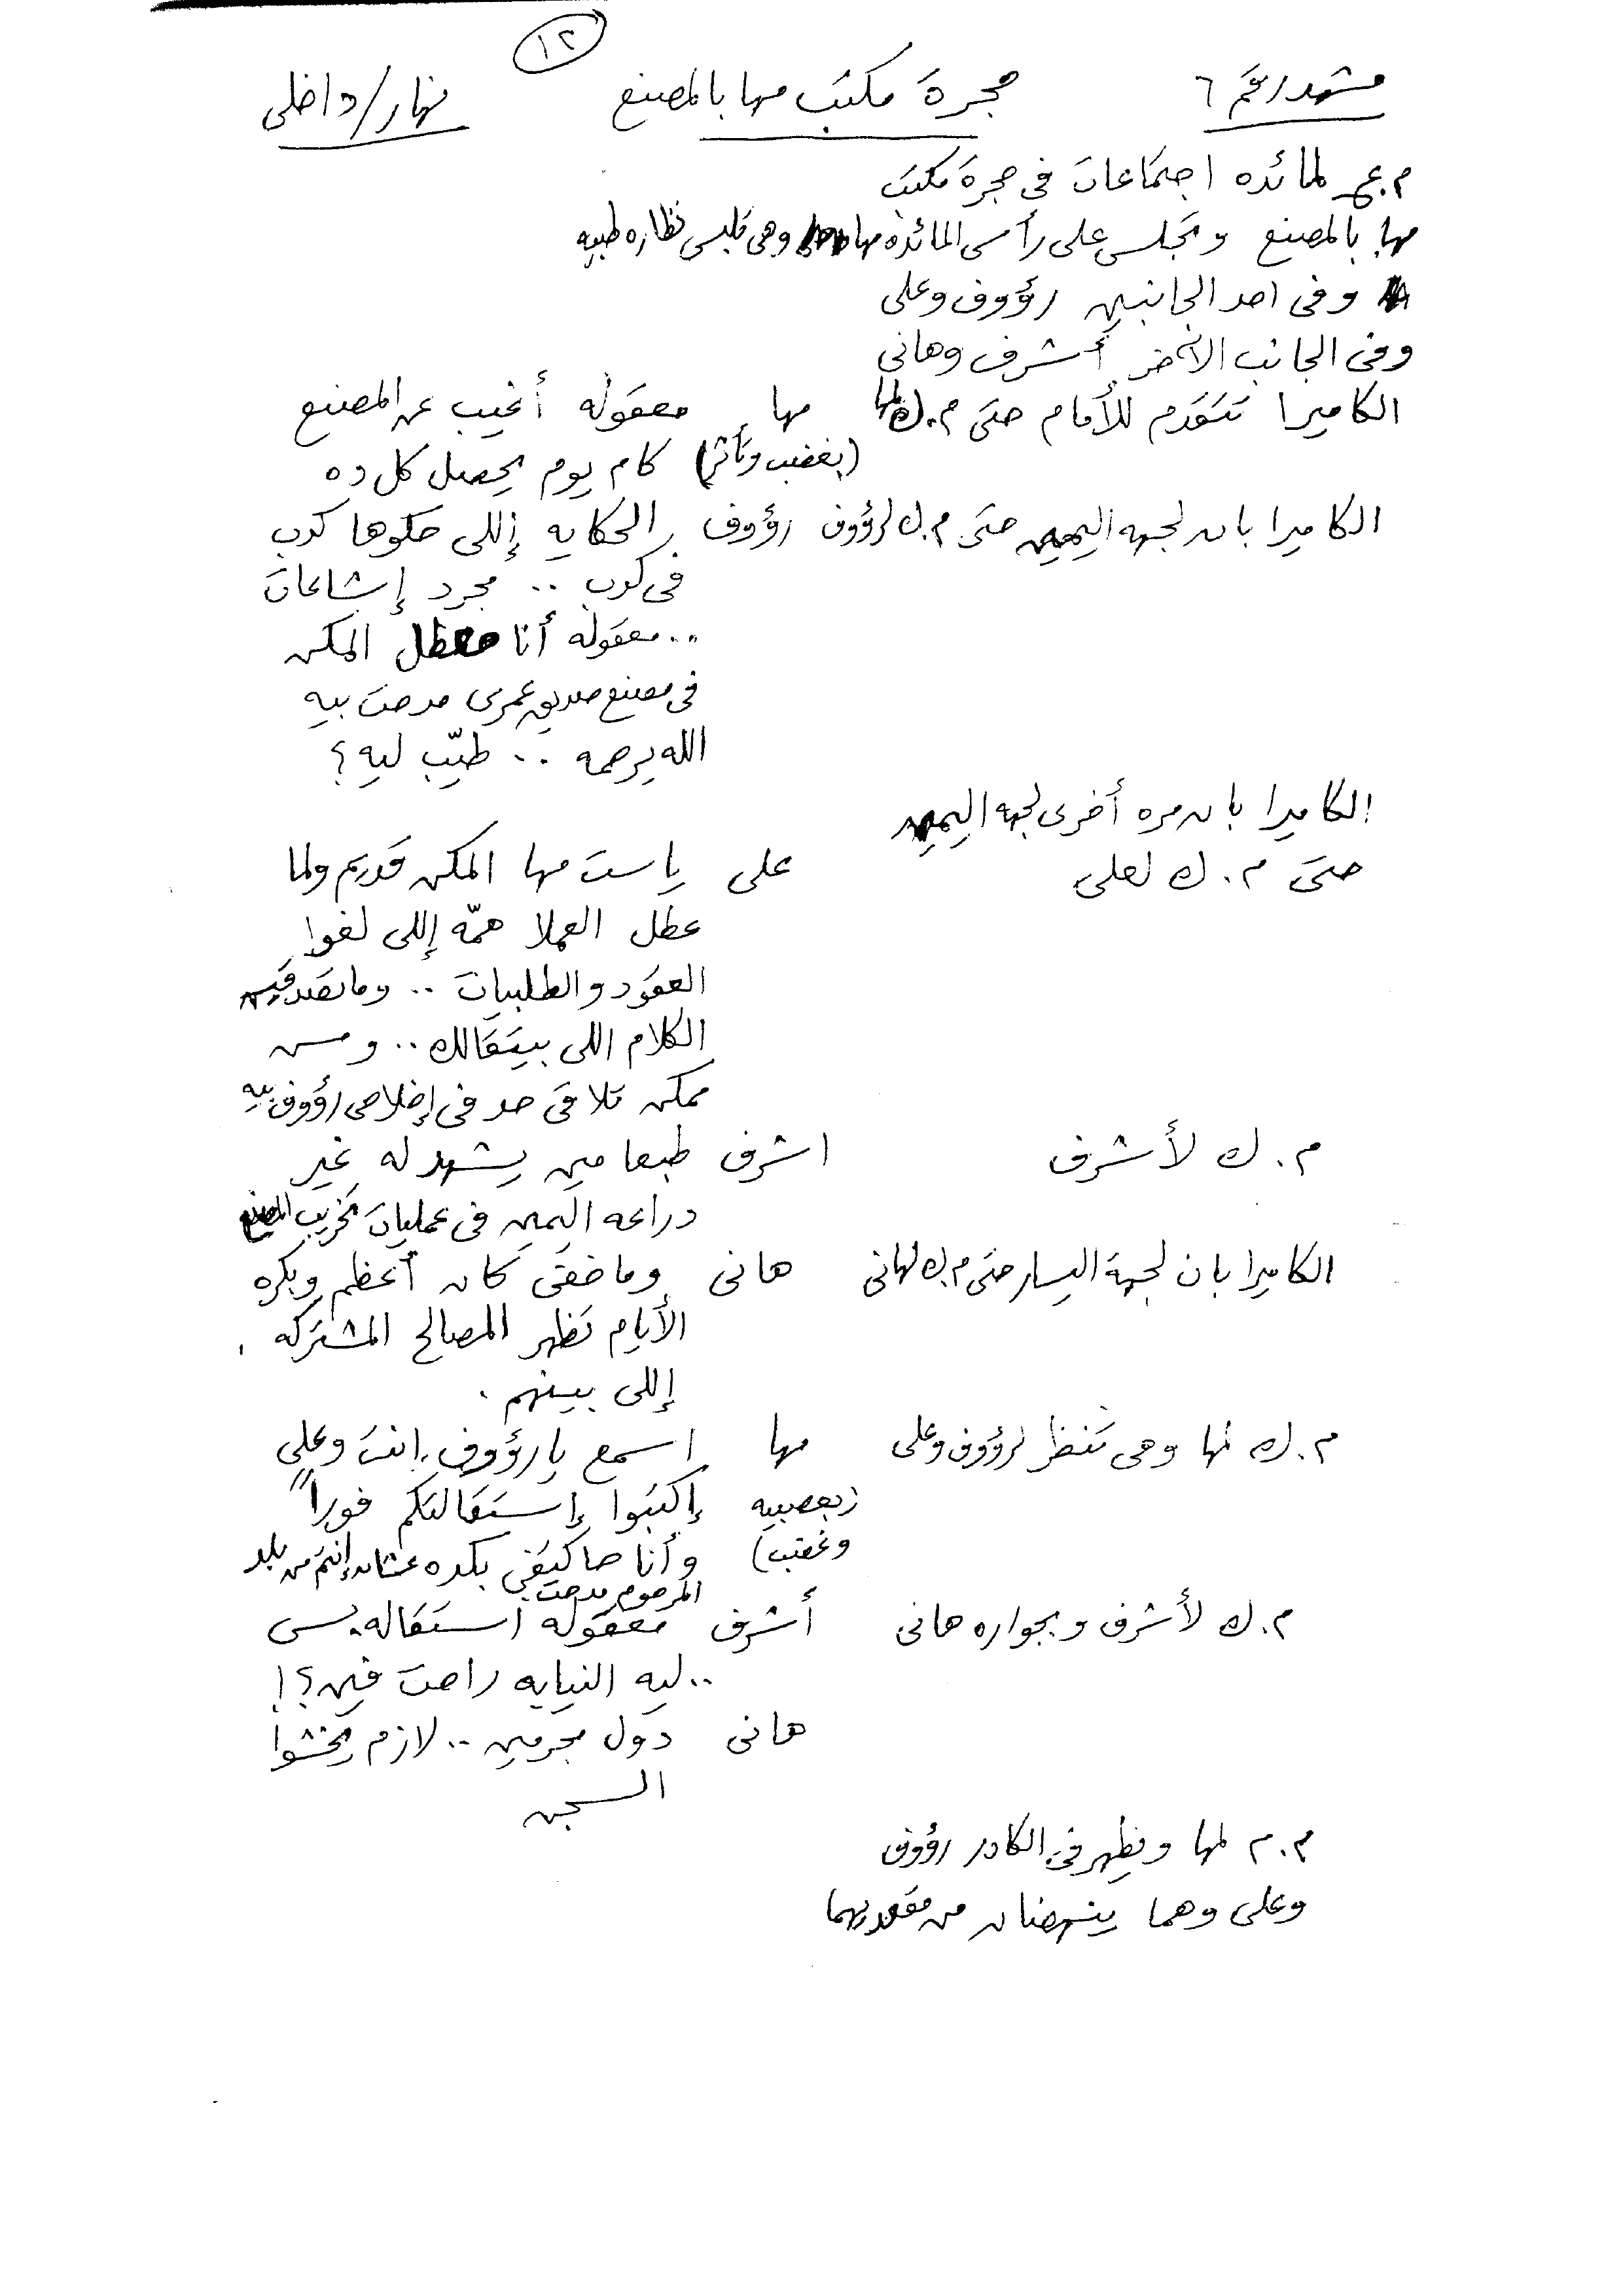 ١٢
مشهد رقم ٦ حجرة مكتب مها بالمصنع نهار/داخلى
م.ع لمائده اجتماعات فى حجرة مكتب
مها بالمصنع وتجلس على رأس المائدة مها وهى تلبس نظاره طبيه
وفى احد الجانبين رؤوف وعلى
وفى الجانب الآخر أشرف وهانى
الكاميرا تتقدم للأمام حتى م.ك لمها مها معقوله أغيب عن المصنع
(بغضب وتأثر) كام يوم يحصل كل ده
الكاميرا بان لجهه اليمين حتى م.ك لرؤوف رؤوف الحكايه إللى حكوها كدب
فى كدب .. مجرد إشاعات
.. معقوله أنا معطل المكن
فى مصنع صديق عمرى مدحت بيه
الله يرحمه .. طيّب ليه؟
الكاميرا بان مره أخرى لجهه اليمين
حتى م.ك لعلى على ياست مها المكن قديم ولما
عطل العملا همّه إللى لغوا
العقود والطلبيات .. وماتصدقيش
الكلام اللى بيتقالك .. ومش
ممكن تلاقى حد فى إخلاص رؤوف بيه
م.ك لأشرف اشرف طبعا مين يشهد له غير
دراعه اليمين فى عمليات تخريب المصنع
الكاميرا بان لجهة اليسار حتى م.ك لهانى هانى وما خفى كان أعظم وبكره
الأيام تظهر المصالح المشتركه
إللى بينهم.
م.ك لمها وهى تنظر لرؤوف وعلى مها اسمع يا رؤوف إنت وعلى
(بعصبيه إكتبوا إستقالتكم فوراً
وغضب) وأنا حاكتفى بكده عشان إنتم من بلد
المرحوم مدحت
م.ك لأشرف وبجواره هانى أشرف معقوله استقاله بس
.. ليه النيابه راحت فين؟!
هانى دول مجرمين .. لازم يخشوا
السجن
م.م لمها ويظهر فى الكادر رؤوف
وعلى وهما ينهضان من مقعديهما